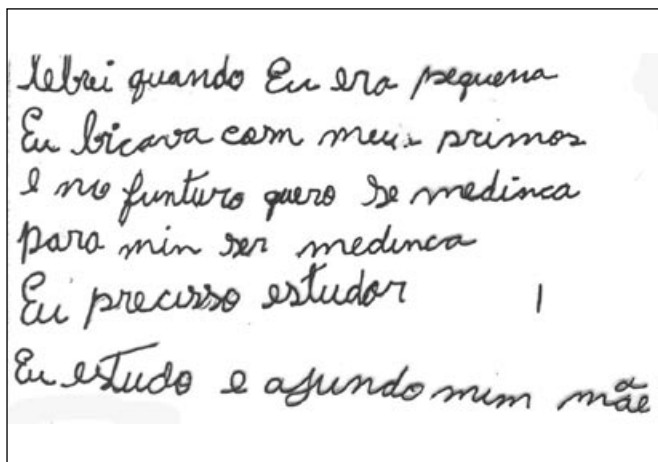 lebrei quando Eu era pequena
Eu bicava com meus primos
e no funturo quero se medinca
para min ser medinca
Eu precisso estudar
Eu estudo e ajundo mim mãe